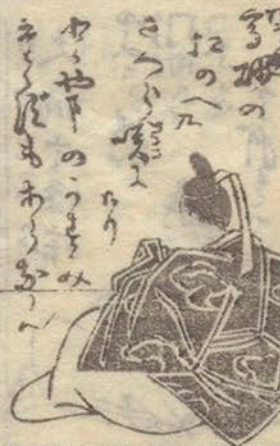 高砂の
尾のへ乃
さくら咲に
けり
とやまのかすみ
たゝずもあらなん